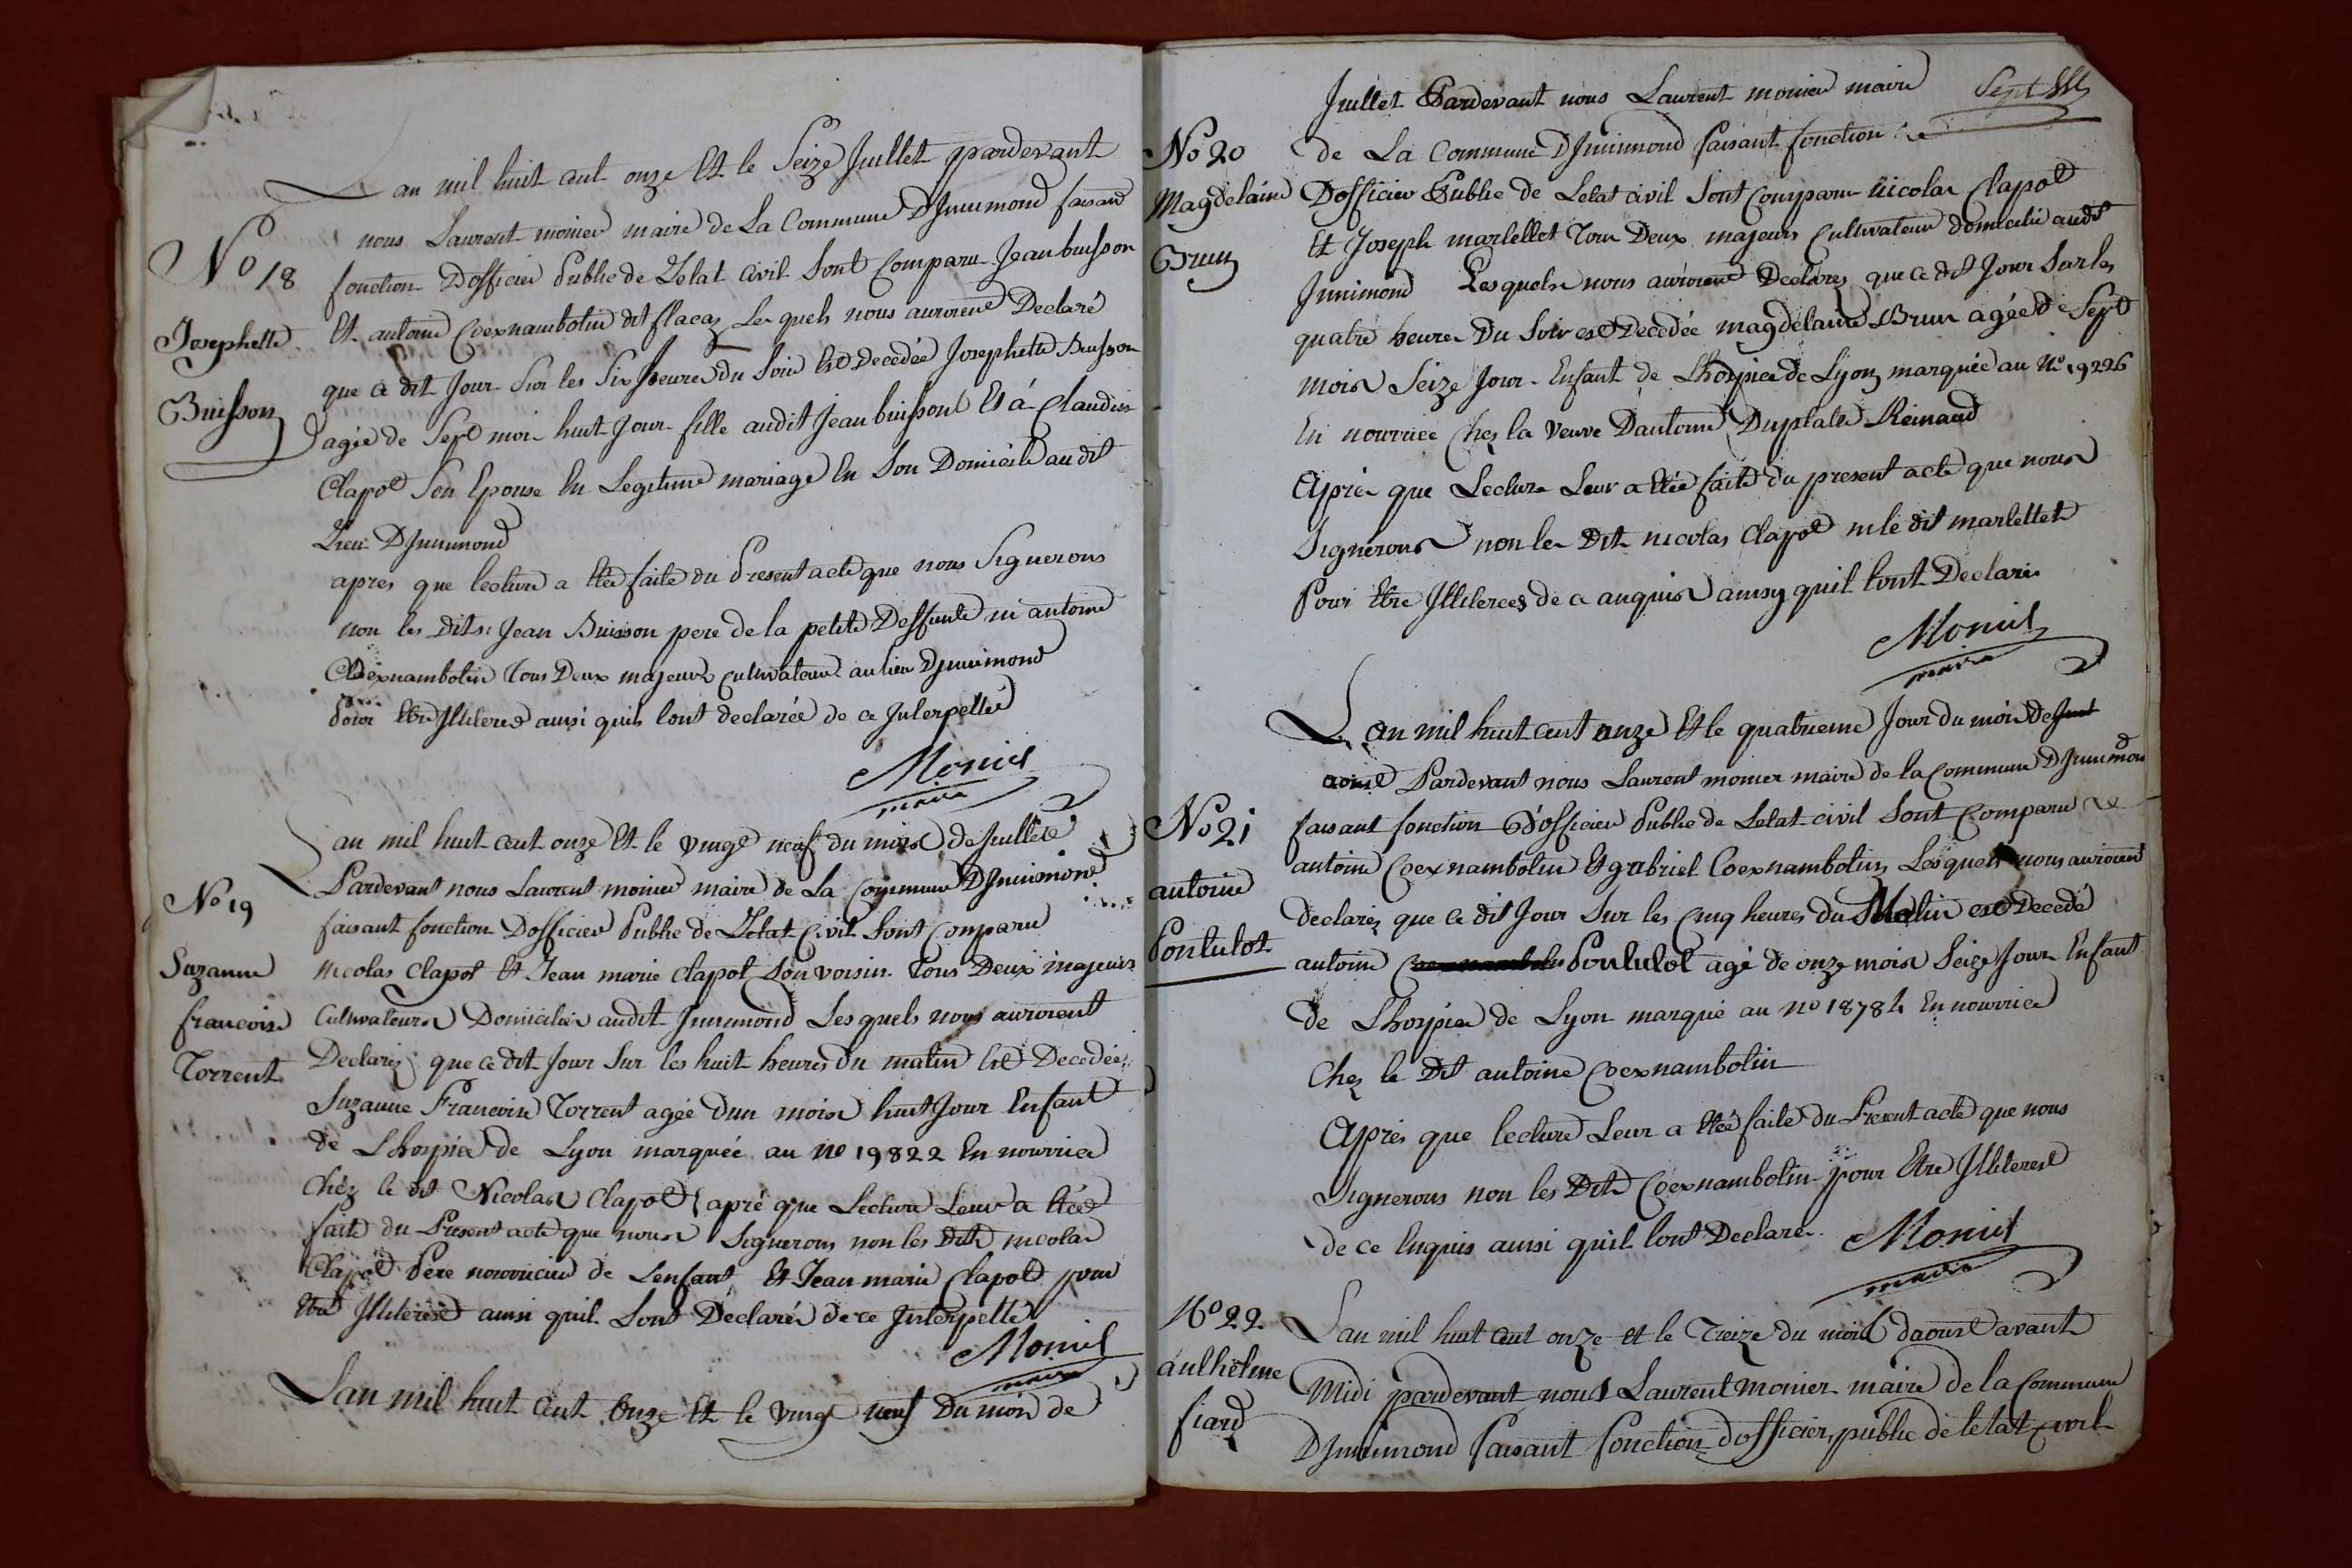 Lan mil huit cent onze Et le Seize Juillet pardevant
nous Laurent monier maire de La Commune DJnnimond faisand
No 18
fonction Dofficier Public de Letat civil Sont Comparu Jean buisson
Josephette
Buisson
Et antoine Coexnambotin dit flacaz Les quels nous auroient Declaré
que ce dit Jour Sur les Six heures du Soir Est Decedée Josephette Buisson
agée de Sept moi huit Jour fille audit Jean buisson Et á Claudin
Clapot Son Epouse En Legitime mariage En Son Domicile au dit
Lieu DJnnimond
apres que lecture a Etée faite du Present acte que nous Signerons
non les Dits Jean Buisson pere de la petite Deffunte ni antoine
Coexnambotin Tous Deux majeurs cultivateurs au lieu Djnnimond
Pour Etre Jlliteres ainsi quils lont declarée de ce Jnterpellée
Monier
maire
Lan mil huit cent onze Et le vingt neuf du mois de Juillete
Pardevant nous Laurent monier maire de La Commune DJnnimond
No 19
Suzanne
francoise
Torrent
faisant fonction Dofficier Public de Letat Civil Sont Comparu
nicolas Clapot Et Jean marie Clapot Son voisin Tous Deux majeurs
Cultivateurs Domicilier audit Jnnimond Les quels nous auroient
Declarez que ce dit Jour Sur les huit heures du matin Est Decedée
Suzanne Francoise Torrent agée Dun mois huit Jour Enfant
de Lhospice de Lyon marquée au no 19822 En nourrice
Chéz le dit Nicolas Clapot apré que Lecture Leur a Etée
faite du Present acte que nous Signerons non les Dits nicolas
Clapot Pere nourricier de Lenfant Et Jean marie Clapot pour
Etre Jlliterest ainsi quil Lont Déclarér de ce Jnterpelle
Monier
maire
Lan mil huit cent Onze Et le vingt neuf Du mois de
Juillet Pardevant nous Laurent monier maire
Sept
No 20
Magdelaine
Brun
de La Commune DJnnimond faisant fonction
Dofficier Public de Letat civil Sont Comparu nicolas Clapot
Et Joseph marlettet Tous Deux majeurs Cultivateur domicilié audt
Jnnimond Lesquels nous auroient Declarez que ce dit Jour Sur les
quatre heures Du Soir est Decedée magdelaine Brun agée de Sept
mois Seize Jour Enfant de Lhospice de Lyon marquée au No 19226
En nourrice Chez la veuve Dantoine Duplatre Reinaud
Aprèr que Lecture Leur a Etée faite du present acte que nous
Signerons non les Dit nicolas Clapot ni le dit marlettet
Pour Etre Jlliterees de ce anquis ainsy quil lont Declarér
Monier
maire
Lan mil huit cent onze Et le quatrieme Jour du mois de Juil
aoust Pardevant nous Laurent monier maire de la Commune DJnnimond
No 21
antoine
Pontulot
faisant fonction Dofficier Public de Letat civil Sont Comparu
antoine Coexnambotin Et gabriel Coexnambotin Lesquels nous auroient
declarez que ce dit Jour Sur les Cinq heures du Matin est Decedé
antoine Coexnambotin Pontulot agé de onze mois Seize Jour Enfant
de Lhospice de Lyon marqué au no 18784 En nourrice
Chez le Dit antoine Coexnambotin
Aprés que lecture Leur a Etée faite du Present acte que nous
Signerons non les Dits Coexnambotin pour Etre Jlliterest
de ce Enquis ainsi quil lont Declarér
Monier
maire
No 22
anthelme
fiard
Lan mil huit cent onze et le Treize du mois daoust avant
Midi pardevant nous Laurent monier maire de la Commune
DJnnimond faisant fonction dofficier public de letat civil